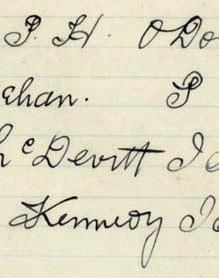 P. H. O Do
ehan. P
h c Devitt J
Kennedy J